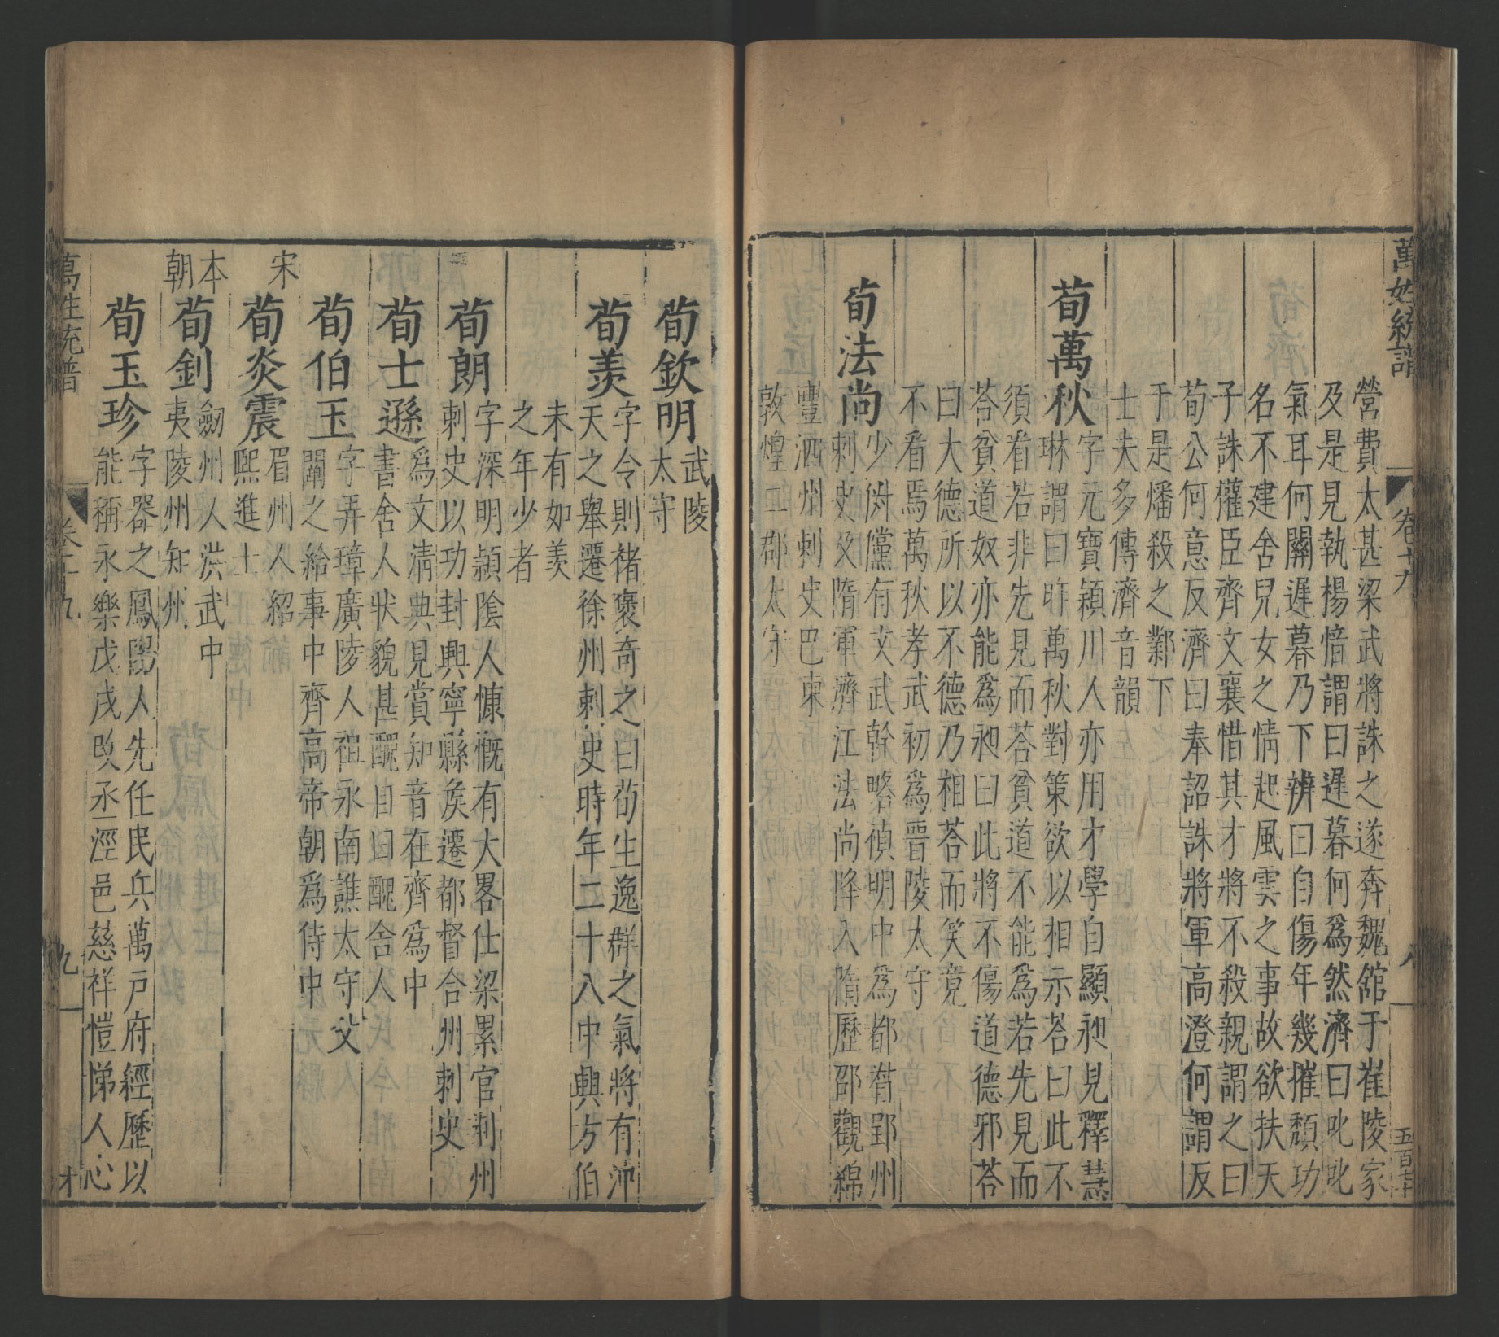 萬姓統譜
卷十九
八
營費太甚梁武將誅之遂奔魏舘于崔陵家
及是見執楊愔謂曰遲暮何爲然濟曰叱叱
氣耳何關遲暮乃下辨曰自傷年幾摧頹功
名不建舍兒女之情起風雲之事故欲扶天
子誅權臣齊文襄惜其才將不殺親謂之曰
荀公何意反濟曰奉詔誅將軍高澄何謂反
于是燔殺之鄴下
士大夫多傳濟音韻
荀萬秋
字元寶潁川人亦用才學自顯昶見釋慧
琳謂曰昨萬秋對策欲以相示荅曰此不
須看若非先見而荅貧道不能爲若先見而
荅貧道奴亦能爲昶曰此將不傷道德邪荅
曰大德所以不德乃相荅而笑竟
不看焉萬秋孝武初爲晉陵太守
荀法尚
少倜儻有文武幹略禎明中爲都督郢州
刺史父隋軍濟江法尚降入隋歷邵觀綿
豐洒州刺史巴東
敦煌二郡太守
荀欽明
武陵
太守
荀羨
字令則褚裒奇之曰荀生逸群之氣將有沖
天之舉遷徐州刺史時年二十八中興方伯
未有如羨
之年少者
荀朗
字深明頴陰人慷慨有大畧仕梁累官荆州
刺史以功封興寧縣侯遷都督合州刺史
荀士遜
爲文清典見賞知音在齊爲中
書舍人狀貌甚醜自曰醜舍人
荀伯玉
字弄璋廣陵人祖永南譙太守父
闡之給事中齊高帝朝爲侍中
宋
荀炎震
眉州人紹
熙進士
本
朝
荀釗
劒州人洪武中
夷陵州知州
荀玉珍
字器之鳳陽人先任民兵萬戶府經歷以
能稱永樂戊戌改丞涇邑慈祥愷悌人心
萬姓統譜
卷十九
九